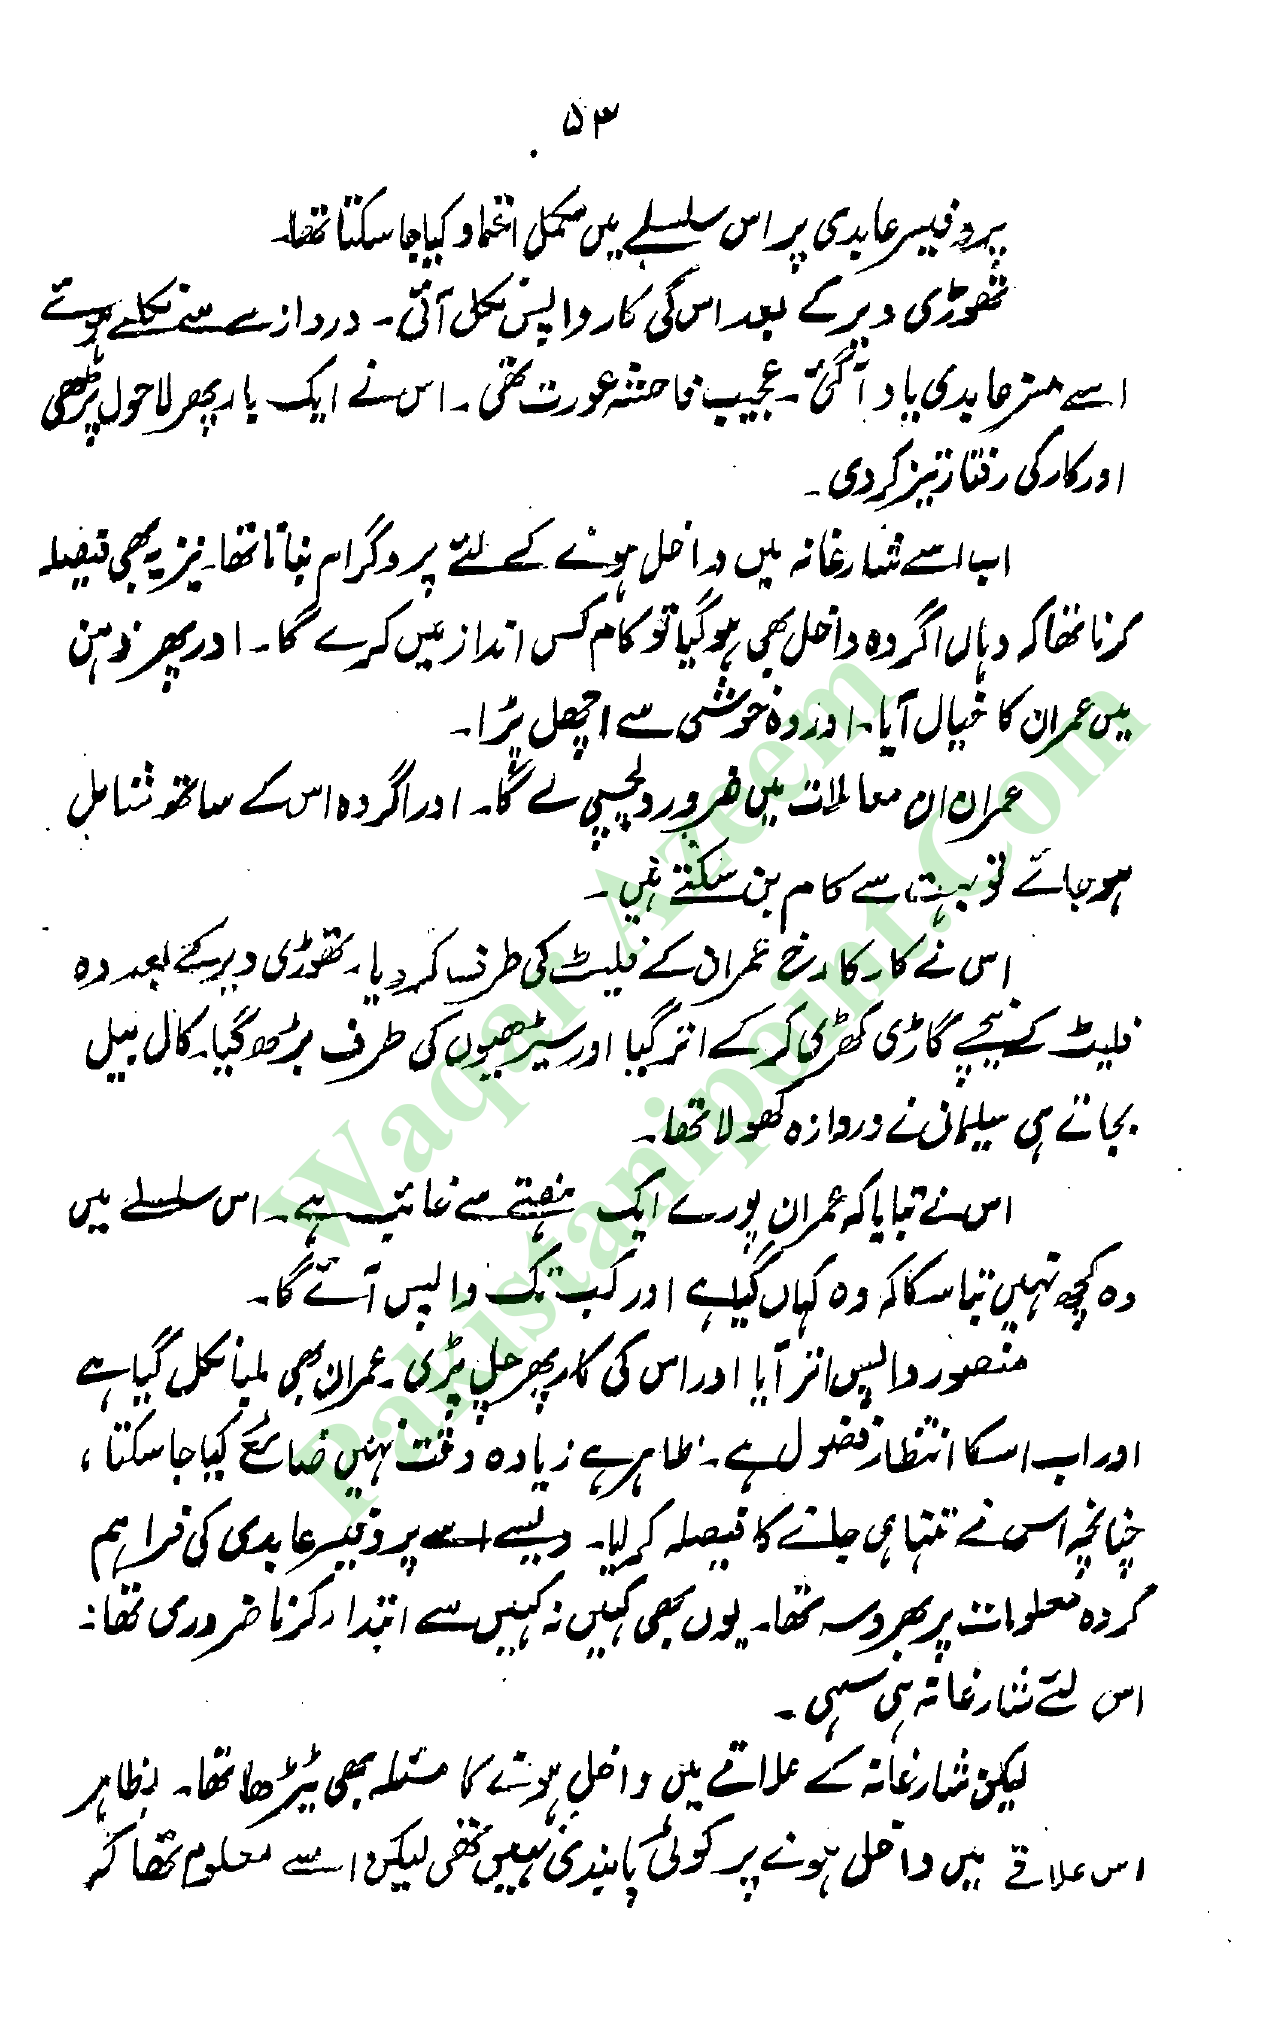 ۵۳
پروفیسر عابدی پر اس سلسلے میں مکمل اعتماد کیا جا سکتا تھا۔
تھوڑی دیر کے بعد اس کی کار واپس نکل آئی۔ دروازے سے نکلتے ہوئے
اسے مسز عابدی یاد آ گئی۔ عجیب فاحشہ عورت تھی۔ اس نے ایک بار پھر لاحول پڑھی
اور کار کی رفتار تیز کر دی۔
اب اسے شارغانہ میں داخل ہونے کے لئے پروگرام بنانا تھا۔ نیز یہ بھی فیصلہ
کرنا تھا کہ وہاں اگر وہ داخل بھی ہو گیا تو کام کس انداز میں کرے گا۔ اور پھر ذہن
میں عمران کا خیال آیا۔ اور وہ خوشی سے اچھل پڑا۔
عمران ان معاملات میں ضرور دلچسپی لے گا۔ اور اگر وہ اس کے ساتھ شامل
ہو جائے تو بہت سے کام بن سکتے ہیں۔
اس نے کار کا رخ عمران کے فلیٹ کی طرف کر دیا۔ تھوڑی دیر کے بعد وہ
فلیٹ کے نیچے گاڑی کھڑی کر کے اتر گیا اور سیڑھیوں کی طرف بڑھ گیا۔ کال بیل
بجاتے ہی سلیمان نے دروازہ کھولا تھا۔
اس نے بتایا کہ عمران پورے ایک ہفتے سے غائب ہے۔ اس سلسلے میں
وہ کچھ نہیں بتا سکا کہ وہ کہاں گیا ہے اور کب تک واپس آئے گا۔
منصور واپس اتر آیا اور اس کی کار پھر چل پڑی۔ عمران بھی لمبا نکل گیا ہے
اور اب اسکا انتظار فضول ہے۔ ظاہر ہے زیادہ وقت نہیں ضائع کیا جا سکتا،
چنانچہ اس نے تنہا ہی جانے کا فیصلہ کر لیا۔ ویسے اسے پروفیسر عابدی کی فراہم
کردہ معلومات پر بھروسہ تھا۔ یوں بھی کہیں نہ کہیں سے ابتدا کرنا ضروری تھا۔
اس لئے شارغانہ ہی سہی۔
لیکن شارغانہ کے علاقے میں داخل ہونے کا مسئلہ بھی ٹیڑھا تھا۔ بظاہر
اس علاقے میں داخل ہونے پر کوئی پابندی نہیں تھی لیکن اسے معلوم تھا کہ
Waqar Azeem
Pakistanipoint.Com